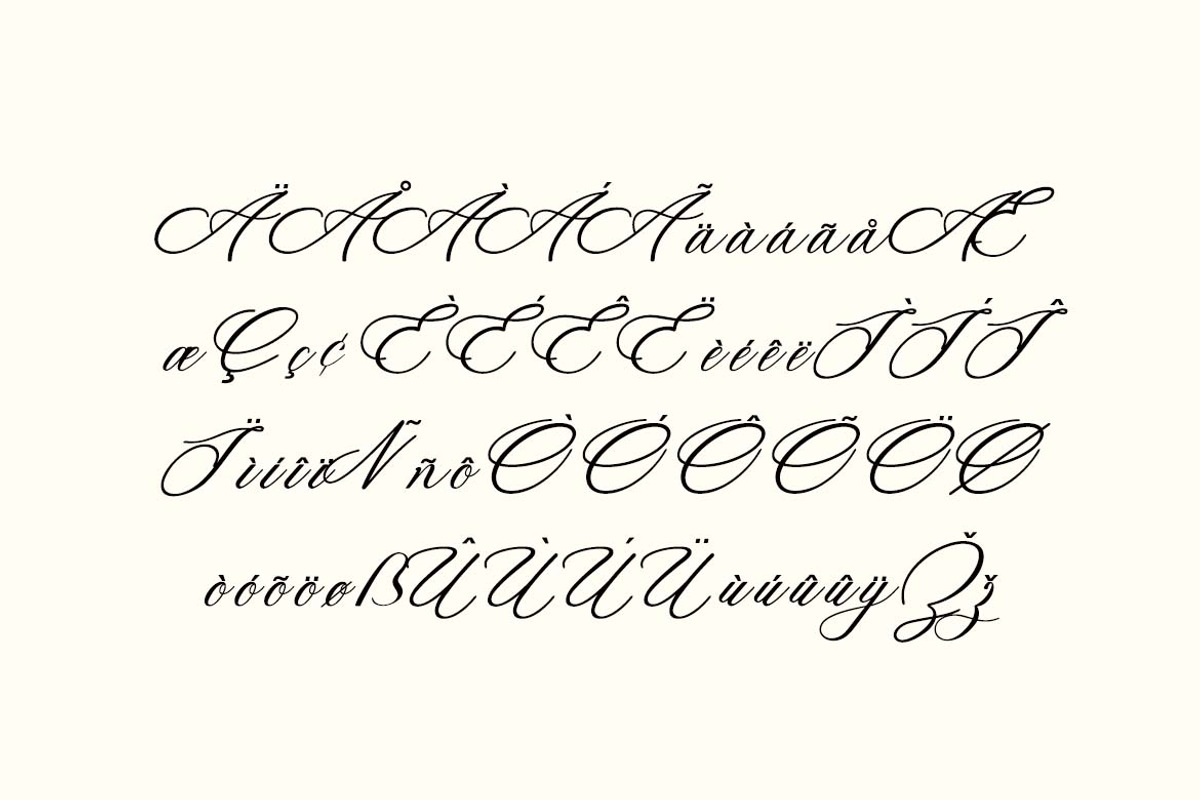 ÄÅÀÁÃäàáãåÆ
æÇç¢ÈÉÊËèéêëÌÍÎ
ÏìíîïÑñôÒÓÔÕÖØ
òóõöøßÛÙÚÜùúûûÿŽž